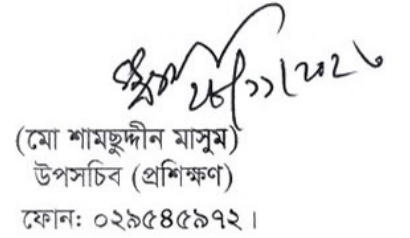 ২৮/১১/২০২৬
(মো শামছুদ্দীন মাসুম)
উপসচিব (প্রশিক্ষণ)
ফোন: ০২৯৫৪৫৯৭২।